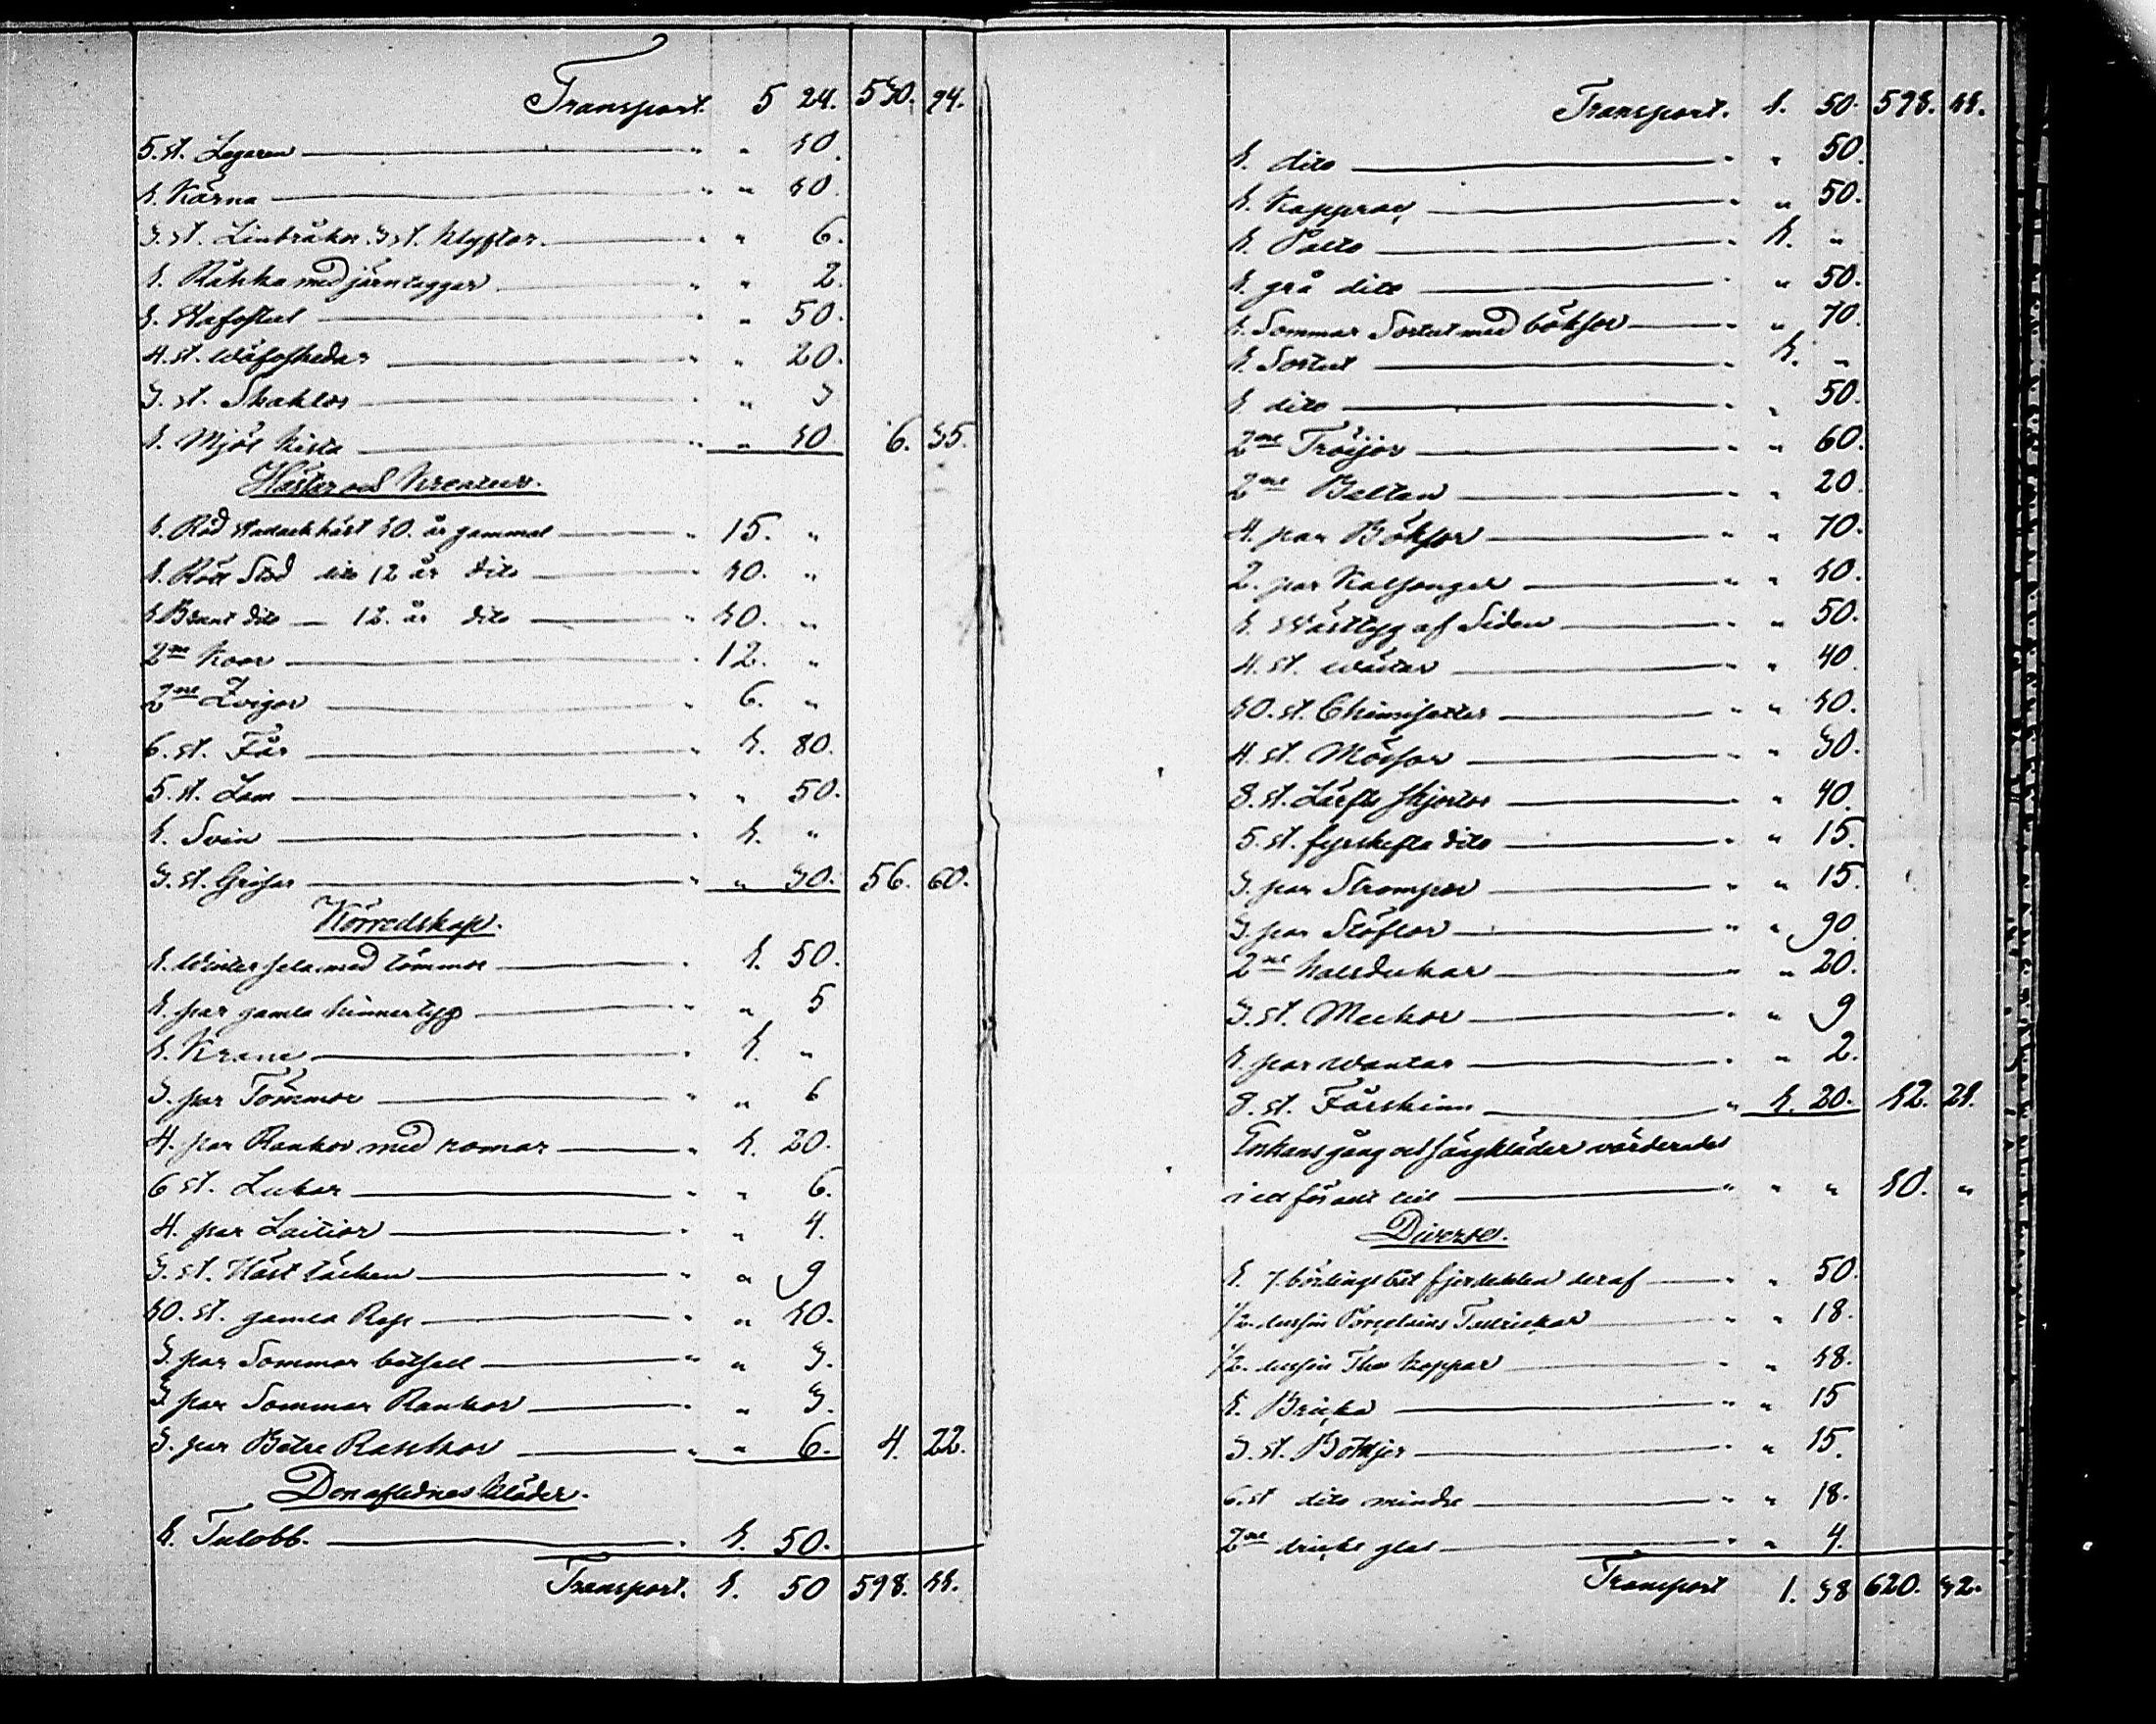 Transport. 5 24. 530. 94.
5. st. Legaren " " 10.
1. Kärna " " 10.
3. st. Linbråkor. 3 st. klyftor. " " 6.
1. Räkka med järntaggar " " 2.
1. Wäfstol " " 50.
4. st. wäfskedar " " 20.
3. st. Skaklor " " 3
1. Mjöl kista " " 10 6. 35.
Hästar och kreatur.
1. Röd Wadackhäst 10. år gammal " 15. "
1. Rött Stod dito 12 år dito " 10. "
1 Brunt dito 12. år dito " 10. "
2ne koor " 12. "
2ne Qvigor " 6. "
6. st. Får " 1. 80.
5. st. Lam " " 50.
1. Svin " 1. "
3. st. Grisar " " 30. 56. 60.
Körredskap.
1. Winter sela med tömmar " 1. 50.
1. par gamla himmertyg " " 5
1. Krane " 1. "
3. par Tömmar " " 6
4. par Rankor med romar " 1. 20.
6 st. Lukor " " 6.
4. par Laitior " " 4.
3. st. Häst täcken " " 9
10. st. gamla Rep " " 10.
3. par Sommar bätsell " " 3.
3 par Sommar Rankor " " 3.
3. par Bätre Rankor " " 6. 4. 22.
Den aflednes kläder.
1. Tulobb. " 1. 50.
Transport. 1. 50 598. 11.
Transport. 1. 50. 598. 11.
1. dito " " 50.
1. Kapprac " " 50.
1. Palto " 1. "
1. grå dito " " 50.
1. Sommar Sortut med böksor " " 70.
1. Sortut " 1. "
1 dito " " 50.
2ne Tröijor " " 60.
2ne Bälten " " 20
4. par Böksor " " 70.
2. par Kalsonger " " 10.
1. Wästtyg af Siden " " 50.
4. st. wästar " " 40
10. st. Chimisetter " " 10.
4. st. Mössor " " 30.
8. st. Lärfts skjortor " " 40.
5. st. fyrskefta dito " " 15.
3. par Strompor " " 15.
3. par Stöflor " " 90
2ne halsdukar " " 20.
3. st. Muckor " " 9
1. par wantar " " 2.
8. st. Fårskinn " 1. 20. 12. 21.
Enkans gång och sängkläder wärderades
i ett för allt till " " " 10. "
Diverse.
1. 7. bördings båt fjerdedelen deraf " " 50.
1/2. dussin Porcelains Tallrickar " " 18.
1/2. dussin The koppar " " 18.
1. Bricka " " 15
3. st. Bottljer " " 15.
6. st dito mindre " " 18.
2ne dricks glas " " 4.
Transport 1. 38 620. 32.